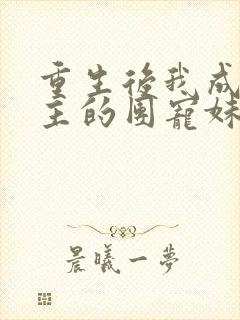 重生後我成
主的团寵妹
晨曦一夢